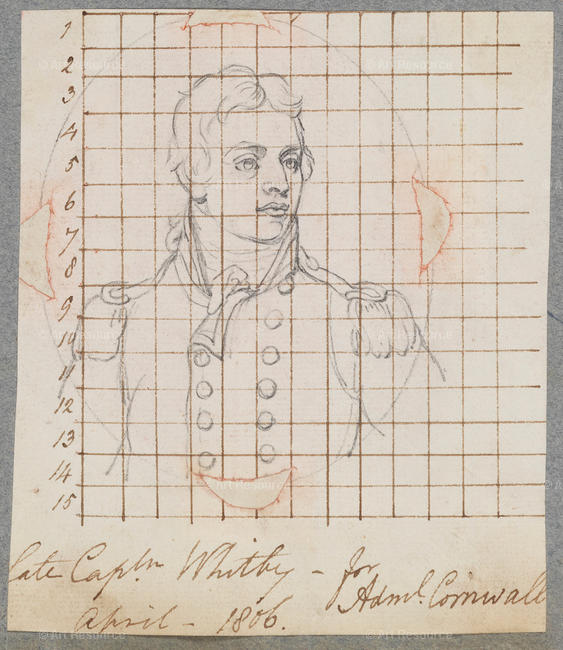 1
2
3
4
5
6
7
8
9
10
11
12
13
14
15
late Captn Whitby - for
Adml. Cornwall
April - 1806.
© Art Resource